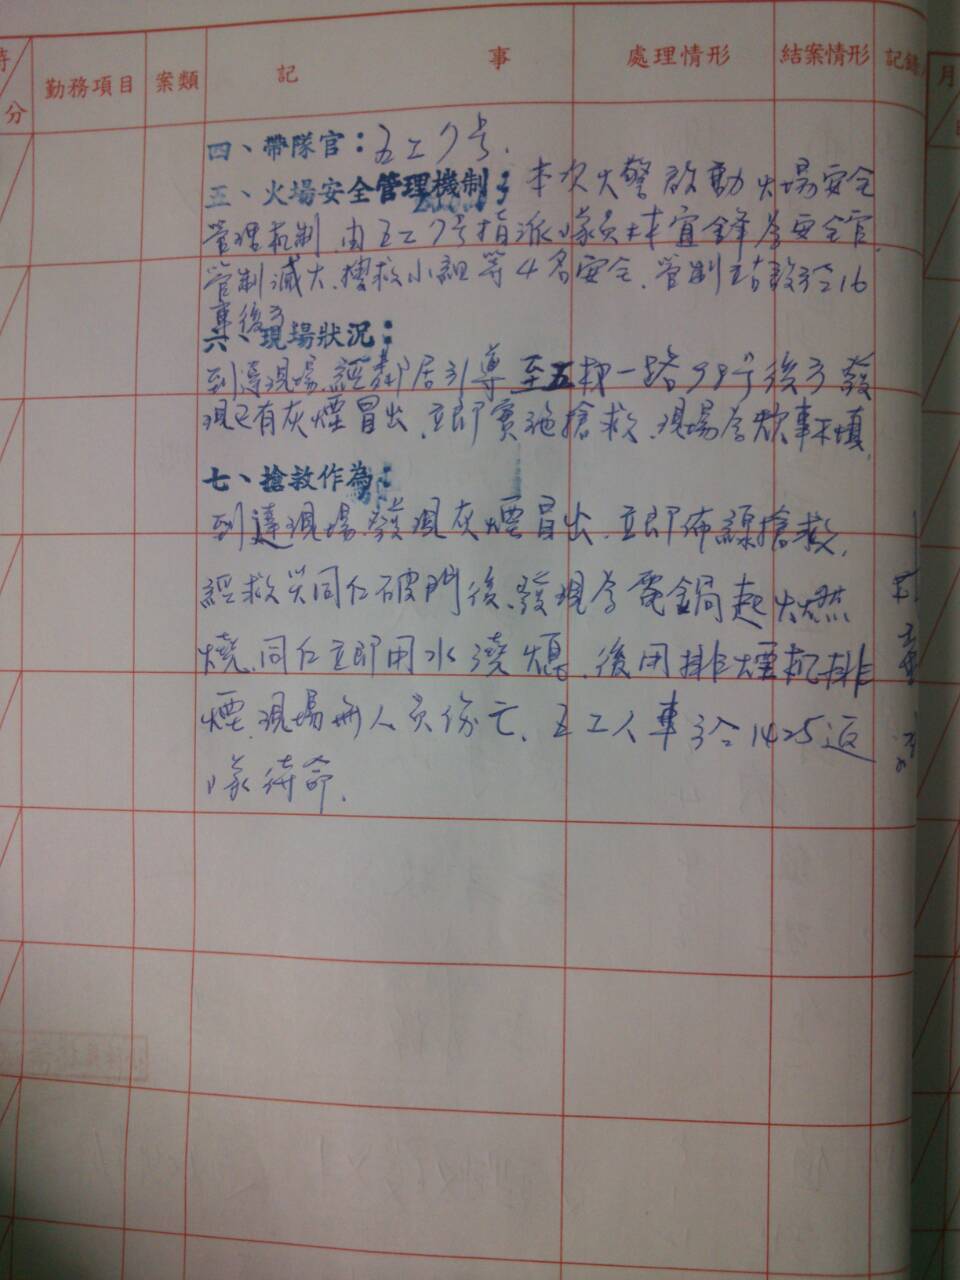 時
分
勤務項目 案類 記 事 處理情形 結案情形 記錄 月
四、帶隊官：五工7号.
五、火場安全管理機制：本次火警啟動火場安全
管理机制,由五工7号指派隊員林宜鋒為安全官,
管制滅火、搜救小組等4名安全,管制站設於16
車後方
六、現場狀況：
到達現場,經鄰居引導至五权一路98号後方發
現已有灰煙冒出,立即實施搶救,現場為炊事不慎,
七、搶救作為：
到達現場,發現灰煙冒出,立即佈線搶救,
經救災同仁破門後,發現為電鍋起火燃
燒,同仁立即用水澆熄,後用排煙机排
煙,現場無人員伤亡,五工人車於1425返
隊待命.